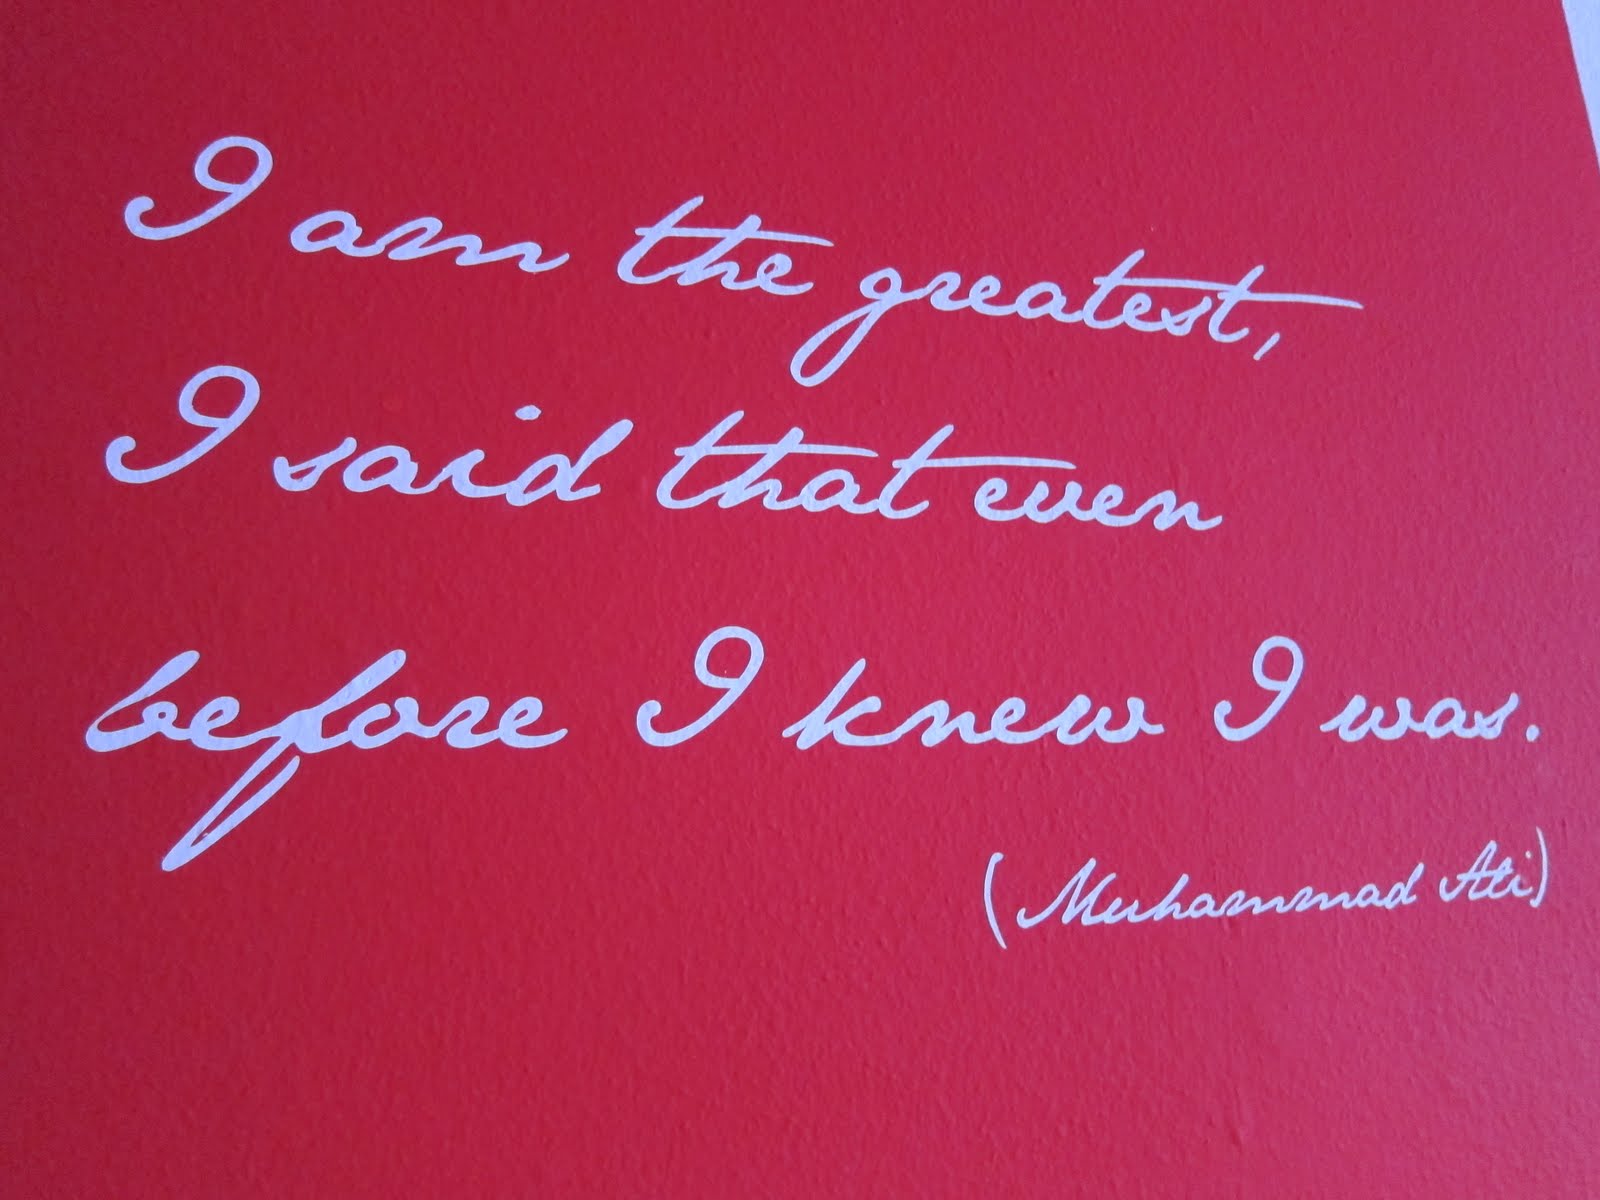 I am the greatest,
I said that even
before I knew I was.
(Muhammad Ali)